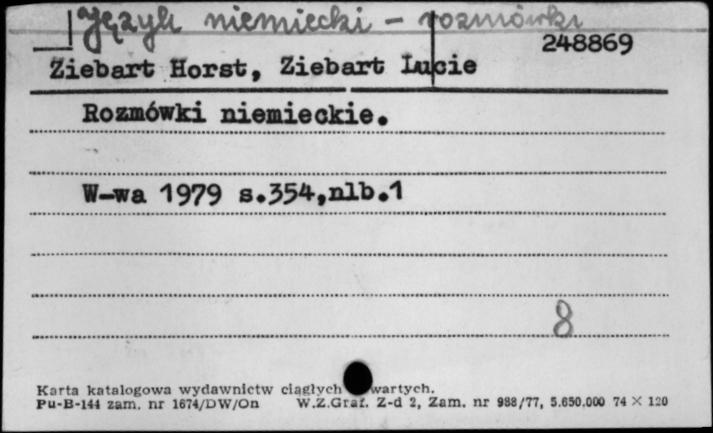 Język niemiecki - rozmówki
248869
Ziebart Horst, Ziebart Lucie
Rozmówki niemieckie.
W-wa 1979 s.354,nlb.1
8
Karta katalogowa wydawnictw ciągłych wartych.
Pu-B-144 zam. nr 1674/DW/On W.Z.Graf. Z-d 2, Zam. nr 988/77, 5.650.000 74 × 120